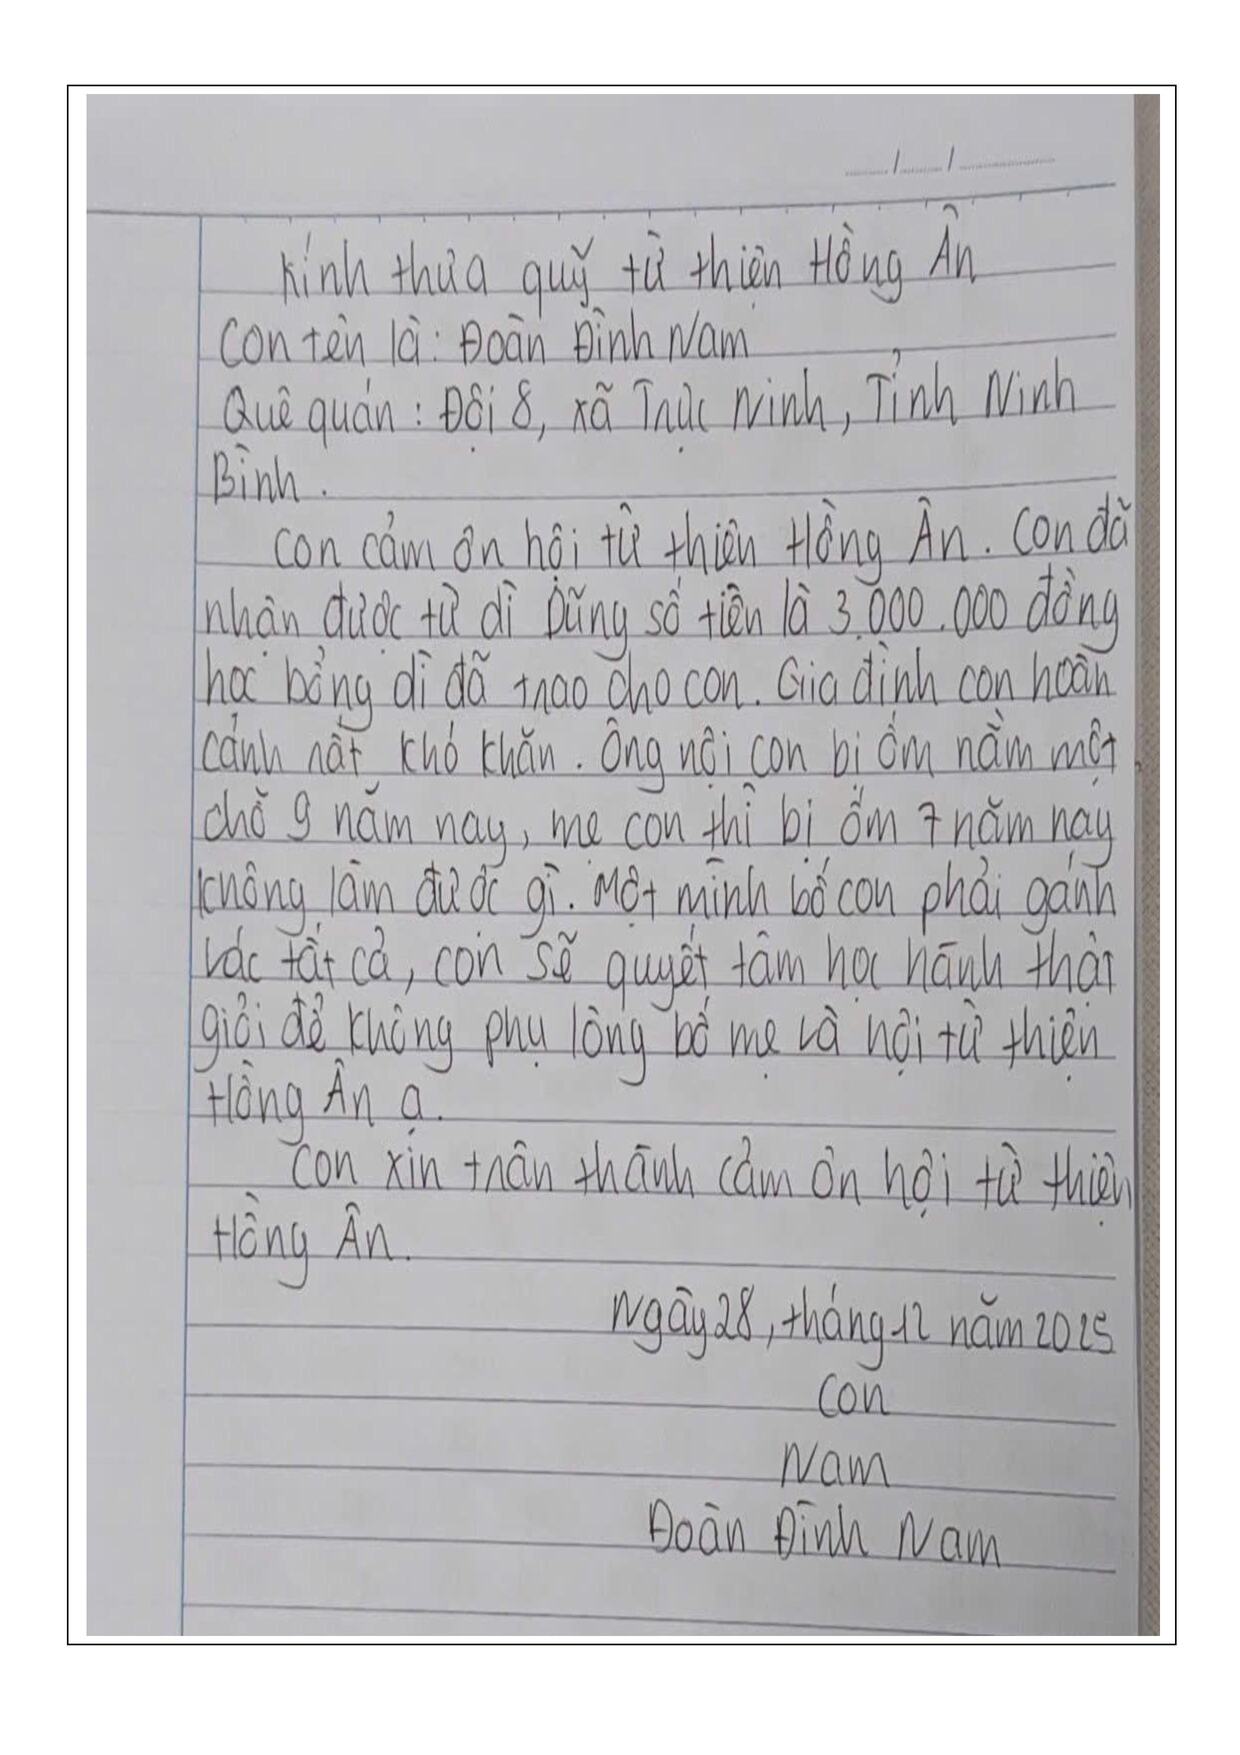 Kính thưa quỹ từ thiện Hồng Ân
Con tên là: Đoàn Đình Nam
Quê quán: Đội 8, xã Trực Ninh, Tỉnh Ninh
Bình.
Con cảm ơn hội từ thiện Hồng Ân. Con đã
nhận được từ dì Dũng số tiền là 3.000.000 đồng
học bổng dì đã trao cho con. Gia đình con hoàn
cảnh rất khó khăn. Ông nội con bị ốm nằm một
chỗ 9 năm nay, mẹ con thì bị ốm 7 năm nay
không làm được gì. Một mình bố con phải gánh
vác tất cả, con sẽ quyết tâm học hành thật
giỏi để không phụ lòng bố mẹ và hội từ thiện
Hồng Ân ạ.
Con xin trân thành cảm ơn hội từ thiện
Hồng Ân.
Ngày 28, tháng 12 năm 2025
Con
Nam
Đoàn Đình Nam